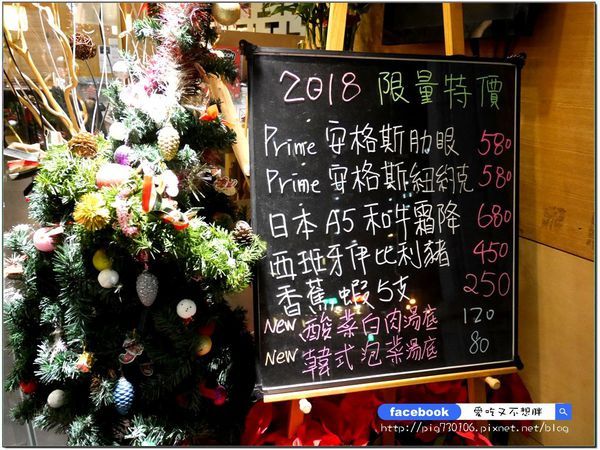 2018 限量特價
Prime 安格斯肋眼 580
Prime 安格斯紐約克 580
日本A5和牛霜降 680
西班牙伊比利豬 450
香蕉蝦5支 250
New 酸菜白肉湯底 120
New 韓式泡菜湯底 80
facebook 愛吃又不想胖
http://pig730106.pixnet.net/blog